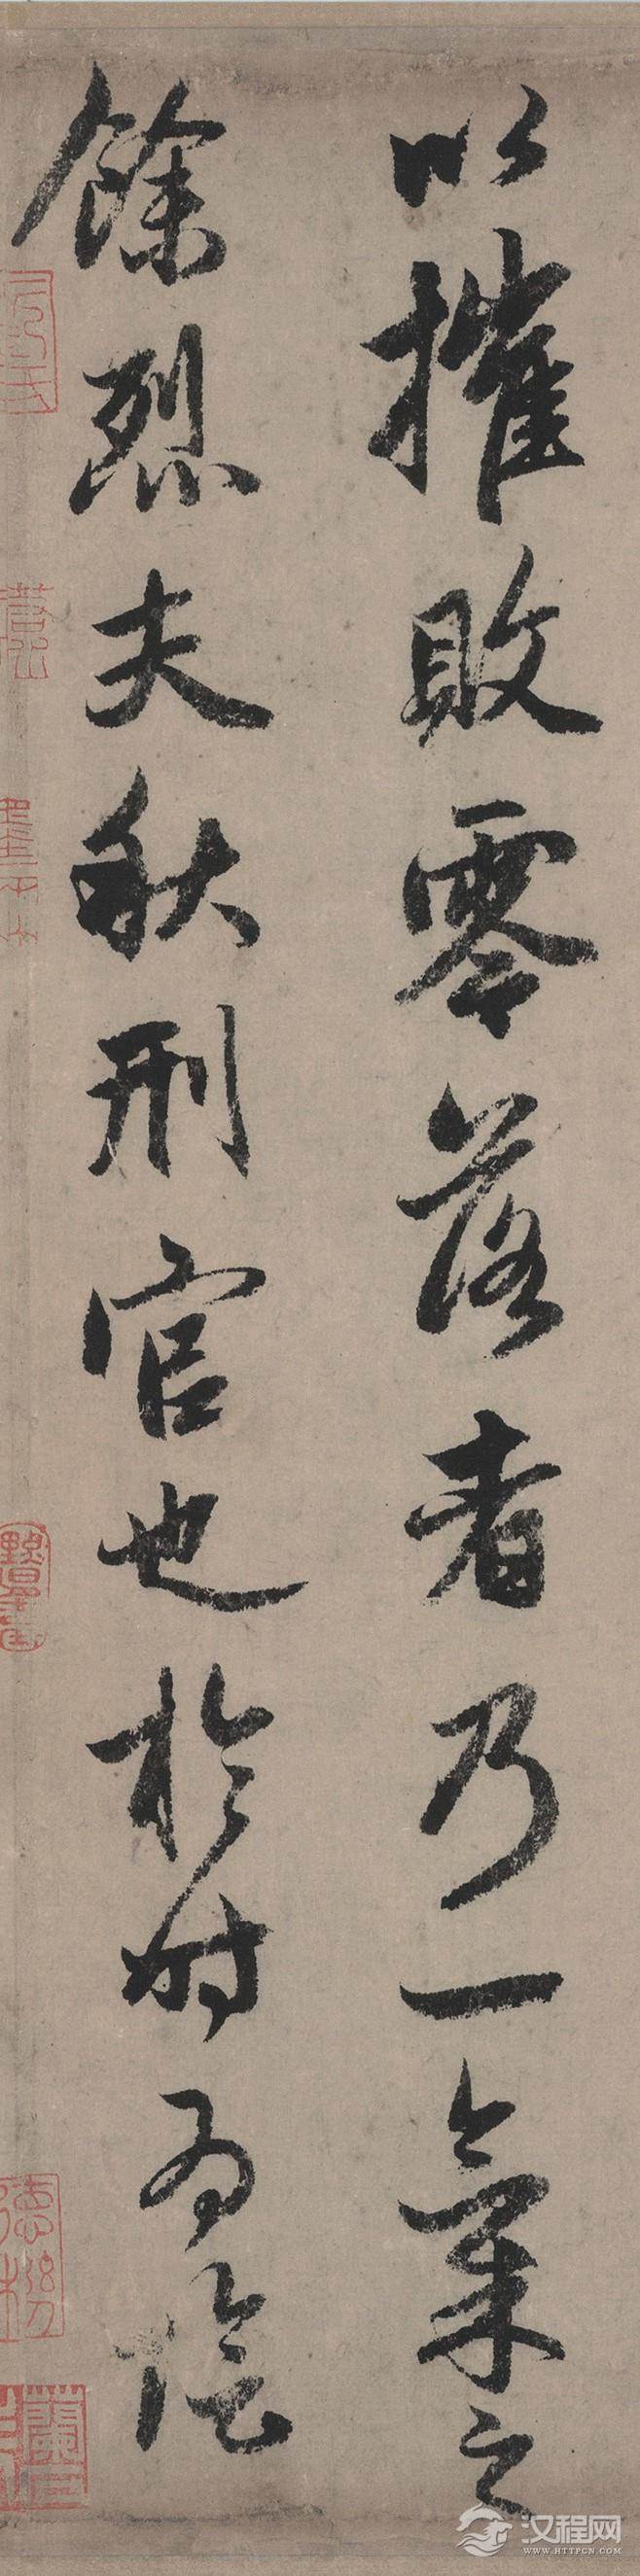 以摧敗零落者乃一氣之
餘烈夫秋刑官也於时為陰
汉程网
WWW.HTTPCN.COM